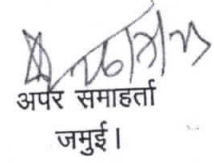 अपर समाहर्ता
जमुई।